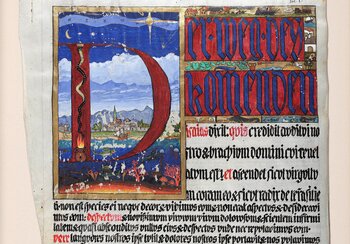 Der · weg · des
komenden
dicit: quis credidit auditui no
stro & brachium domini cui revel
atum est? et ascendet sicut virgult
um coram eo & sicut radix de terra siti
non est species ei neque decor & vidimus eum & non erat aspectus & desideravi
mus eum: despectum & novissimum virorum virum dolorum & scientem infirmi
tatem & quasi absconditus vultus eius & despectus unde nec reputavimus eum:
vere languores nostros ipse tulit & dolores nostros ipse portavit & nos putavimus